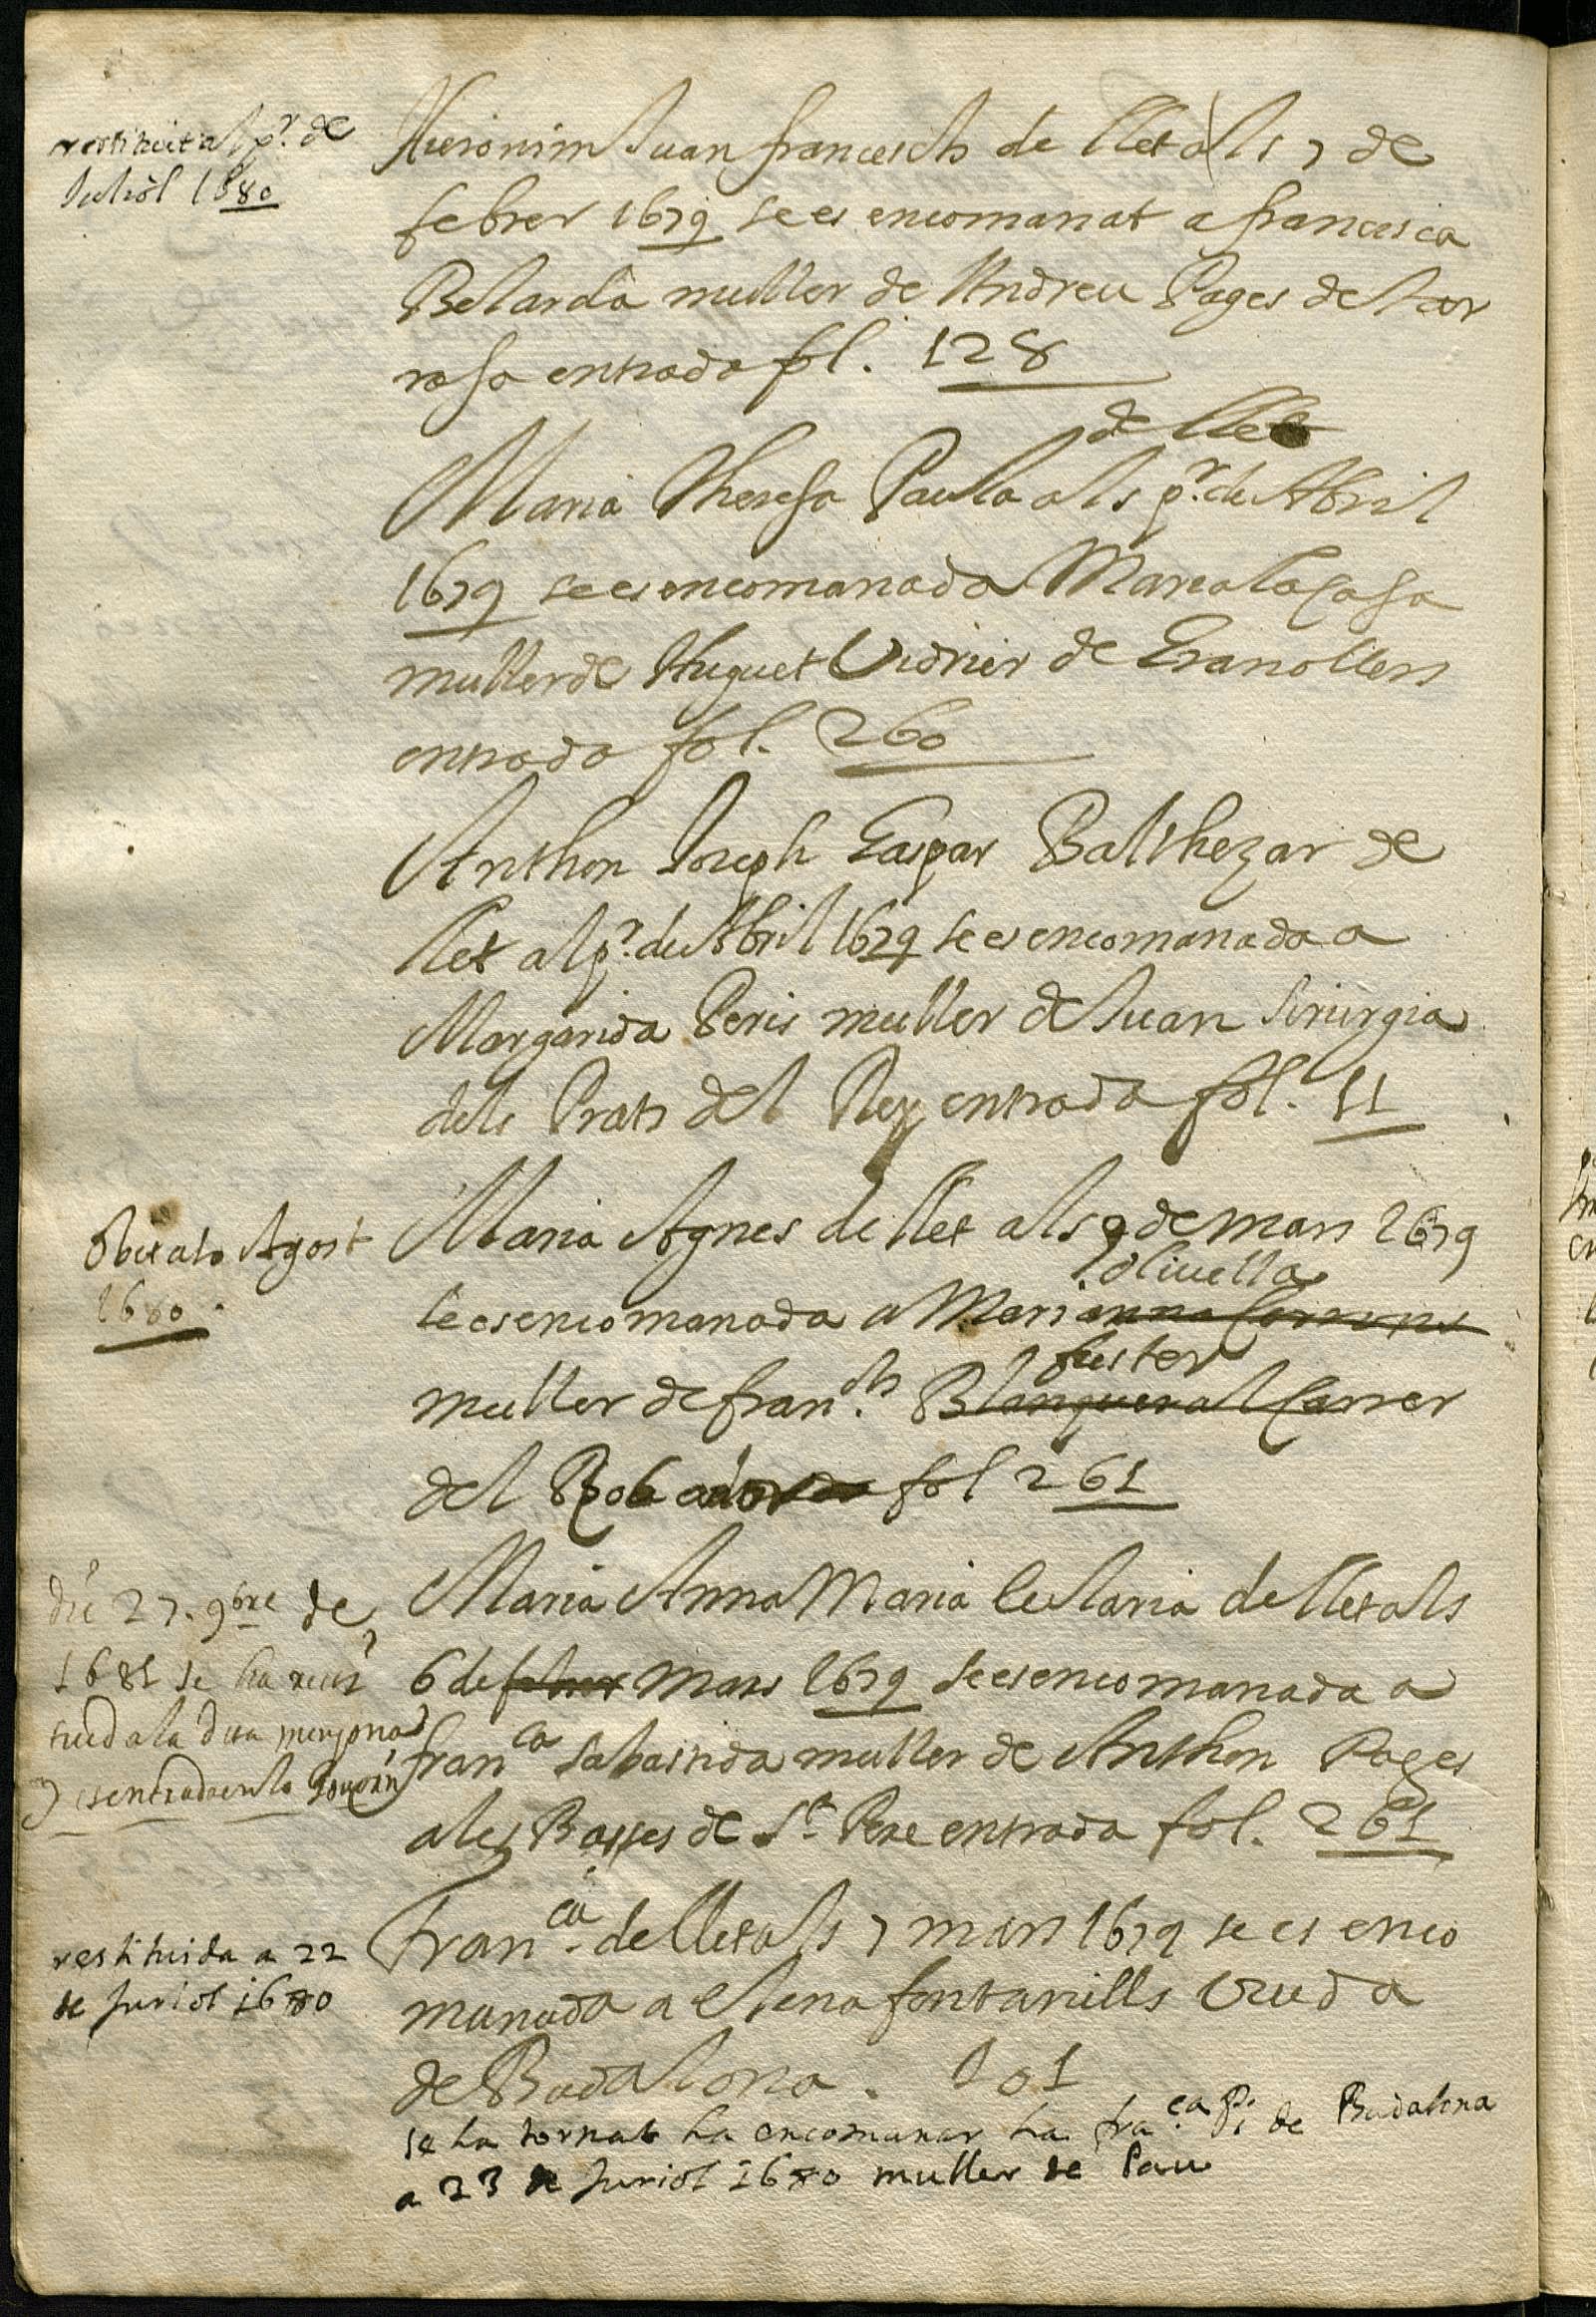 restituit al pr. de
Juliol 1680
Hieronim Juan francesch de llet als 7 de
febrer 1679 se es encomanat a francesca
Belarda muller de Andreu Pages de tar
rasa entrada fol. 128
de llet
Maria Theresa Paula als pr. de Abril
1679 se es encomanada Maria la Casa
muller de Huguet Vidrier de Granollers
entrada fol. 260
Anthon Joseph Gaspar Balthezar de
llet al pr. de Abril 1679 se es encomanada a
Margarida Peris muller de Juan Sirurgia
dels Prats del Rey entrada fol. 11
Obit als Agost
1680.
Maria Agnes de llet als 9 de mars 1679
olivella
se es encomanada a Marianna
fuster
muller de fran.ch Blanquer al Carrer
del Robador fol 261
die 27. 9bre de
1681 se ha resti
tuida la dita minyona
y es entrada en la
Maria Anna Maria Eularia de llet als
6 de febrer Mars 1679 se es encomanada a
franca Sabastida muller de Anthon Pages
a les Basses de St. Pere entrada fol. 261
restituida a 22
de Juriol 1680
Fran.ca de llet als 7 mars 1679 se es enco
manada a Elena fontanills Viuda
de Badalona. 101
se ha tornat ha encomanar ha fra.ca Pi de Badalona
a 23 de Juriol 1680 muller de Pau